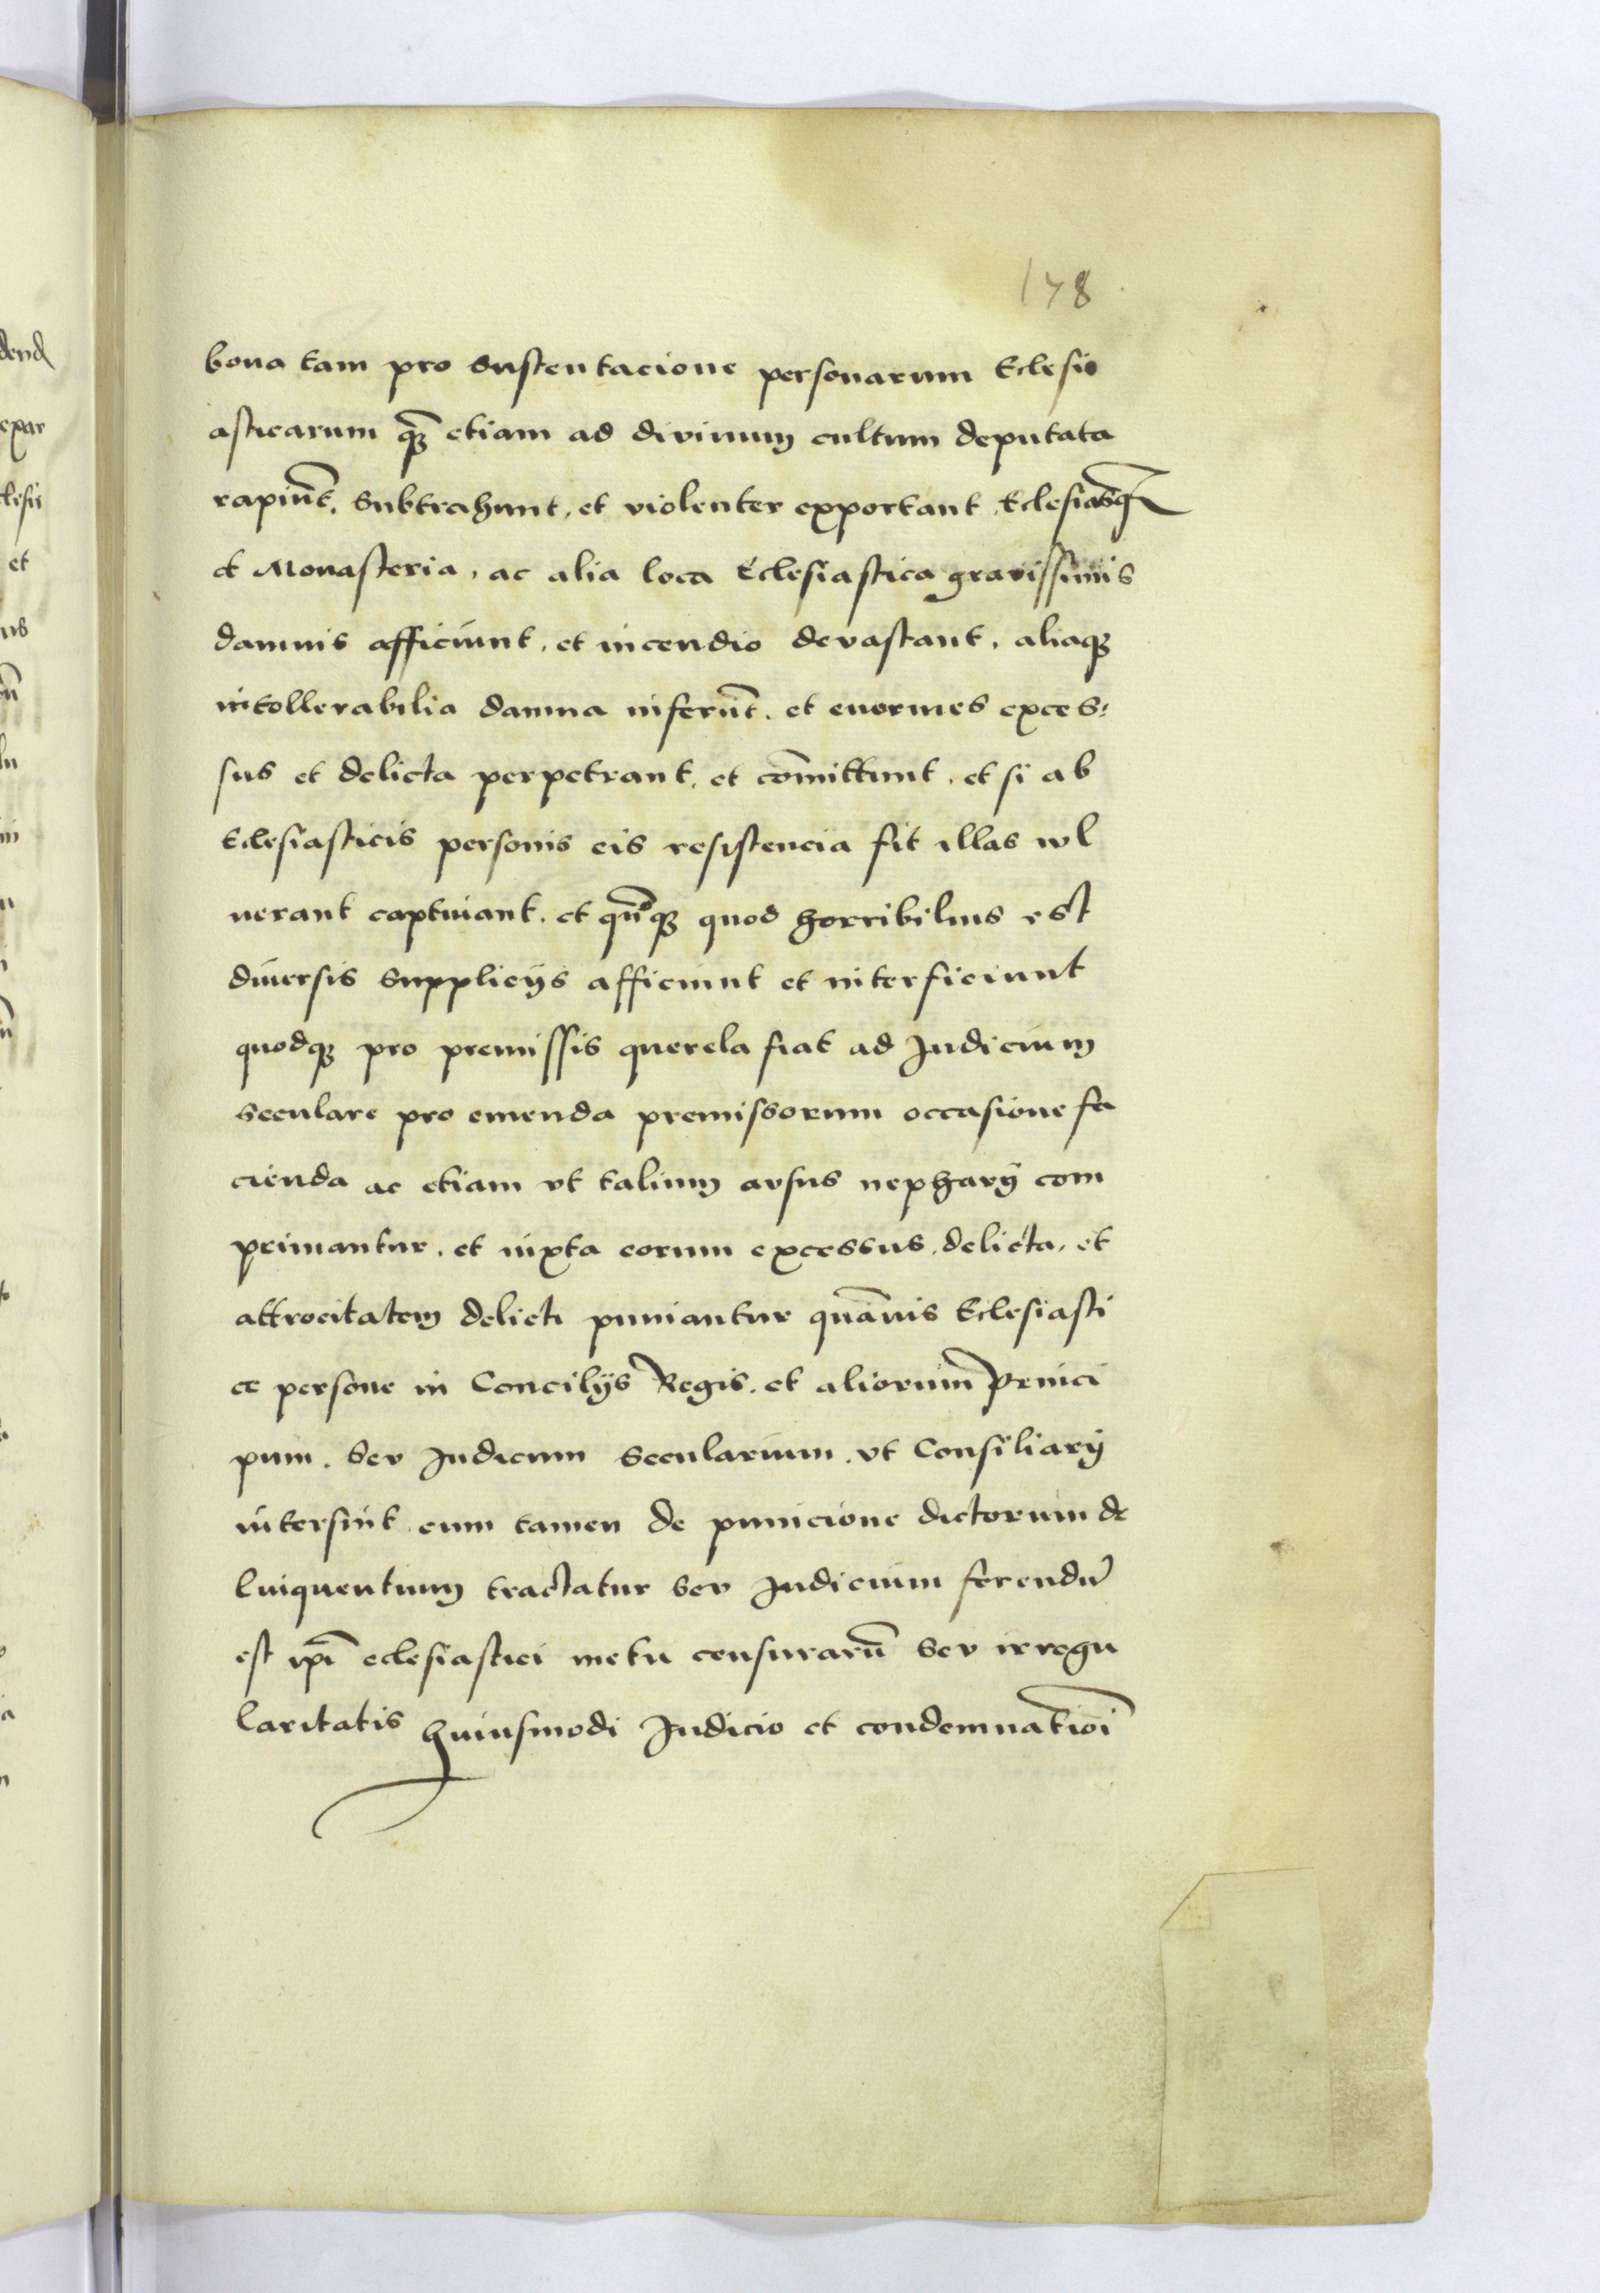 178
bona tam pro sustentacione personarum Eclesi
asticarum qᷓ etiam ad divinum cultum deputata
rapiūt, subtrahunt, et violenter exportant Eclesiasq
et Monasteria, ac alia loca Eclesiastica gravissimis
damnis afficiunt, et incendio devastant, aliaqꝫ
intollerabilia damna inferūt, et enormes exces
sus et delicta perpetrant, et cōmittunt, et si ab
Eclesiasticis personis eis resistencia fit illas vul
nerant captiuant, et qūqꝫ quod horribilius est
diuersis supplicijs afficiunt et interficiunt
quodqꝫ pro premissis querela fiat ad Judicium
seculare pro emenda premissorum occasione fa
cienda ac etiam vt talium avsus nepharij com
primantur, et iuxta eorum excessus, delicta, et
attrocitatem delicti puniantur quāuis Eclesiasti
ce persone in Concilijs Regis, et aliorum Princi
pum, sev Judicum secularium, vt Consiliarij
intersint cum tamen de punicione dictorum de
linquentium tractatur sev Judicium ferendū
est ip̄i eclesiastici metu censurarū sev irregu
laritatis huiusmodi Judicio et condemnatiōi
dend
expar
clesij
et